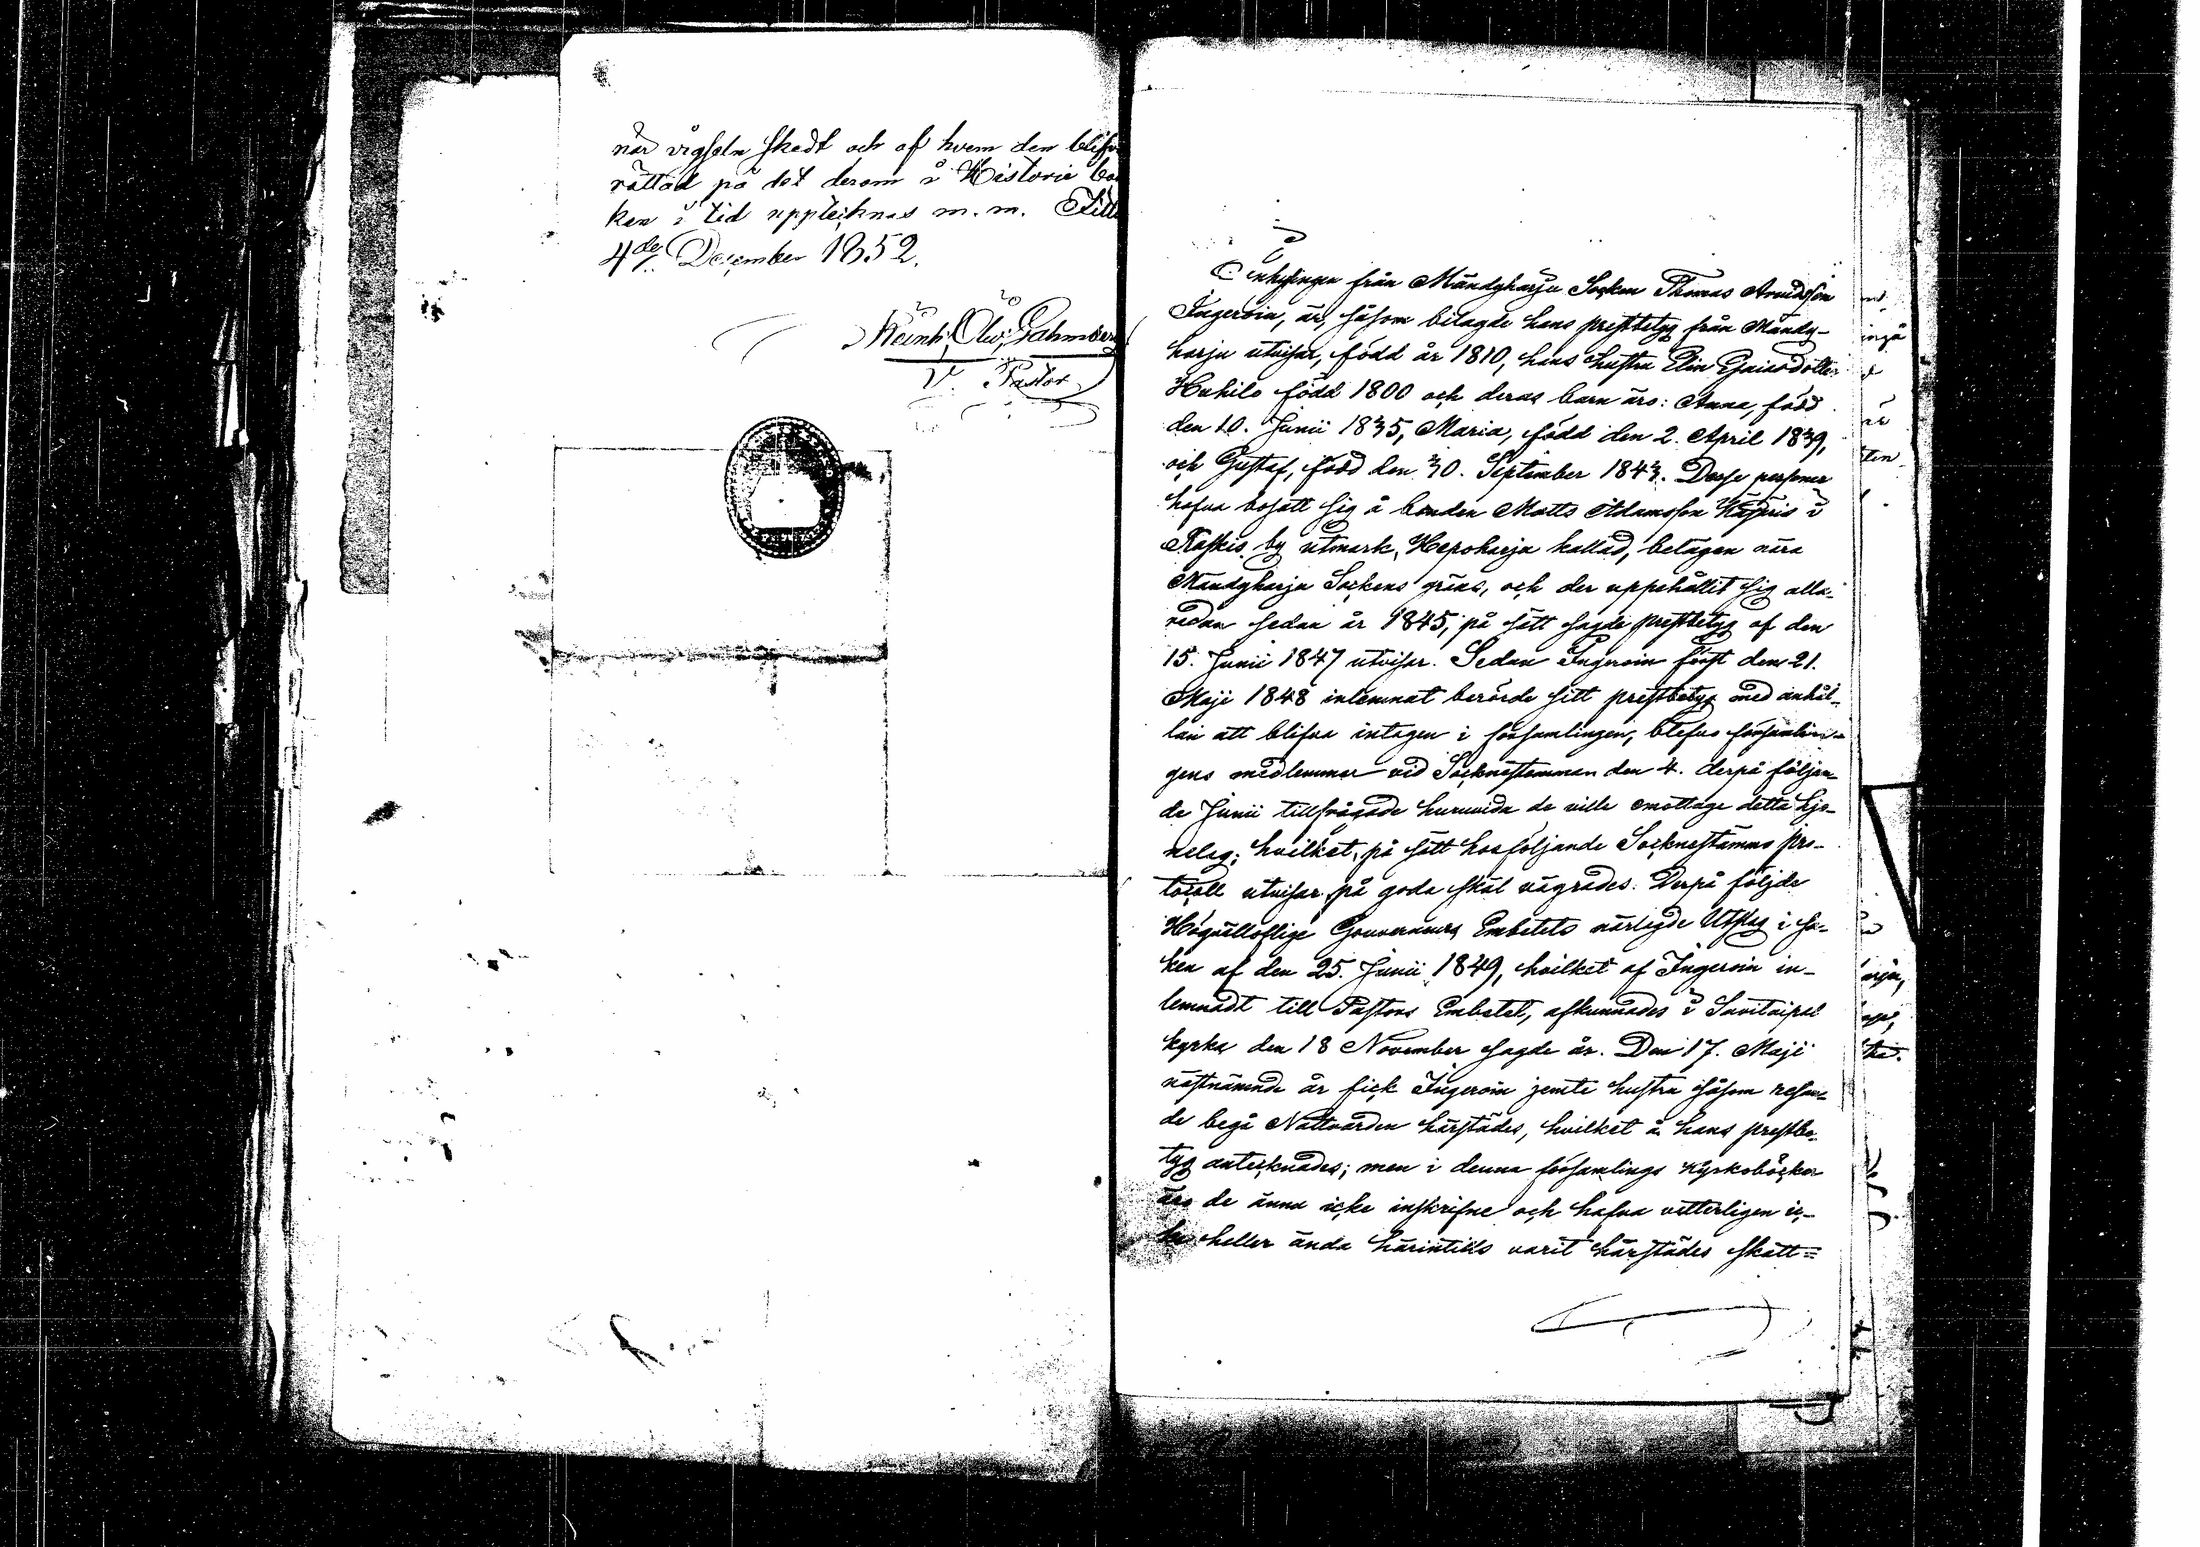 när vigseln skedt och af hvem den blifv
rättad på det derom i Historie bo
ken i tid uppteknas m. m.
4de December 1852.
V. Pastor
Inhysingen från Mändyharju Socken Thomas
Ingeroin, är, såsom bilagde hans prestbetyg från Mändy-
harju utvisar, född år 1810, hans hustru Elin
Hukilo född 1800 och deras barn äro: Anna, född
den 10. Junii 1835, Maria, född den 2. April 1839,
och Gustaf, född den 30. September 1843. Desse personer
hafva bosatt sig å bonden Matts Adamsson i
by utmark, Hepoharju kallad, belägen nära
Mändyharju Sockens gräns, och der uppehållit sig alla-
redan sedan år 1845, på sätt sagde prestbetyg af den
15. Junii 1847 utvisar. Sedan Ingeroin först den 21.
Maji 1848 inlemnat berörde sitt prestbetyg med anhål-
lan att blifva intagen i församlingen, blefvo församlin-
gens medlemmar vid Socknestämman den 4. derpå följan-
de Junii tillfrågade huruvida de ville emottage detta hjo-
nelag; hvilket, på sätt hosföljande Socknestämmo pro-
tocoll utvisar på goda skäl vägrades. Derpå följde
Högvällofliga Gouverneurs Embetets närlagde Utslag i sa-
ken af den 25. Junii 1849, hvilket af Ingeroin in-
lemnadt till Pastors Embetet, afkunnades i Savitaipal
kyrka den 18 November sagde år. Den 17. Maji
nästnämnde år fick Ingeroin jemte hustru såsom resan-
de begå Nattvarden härstädes, hvilket å hans prestbe-
tyg antecknades; men i denna församlings kyrkoböcker
äro de ännu icke inskrifne och hafva vetterligen ic-
ke heller ända härintills varit härstädes skatt=